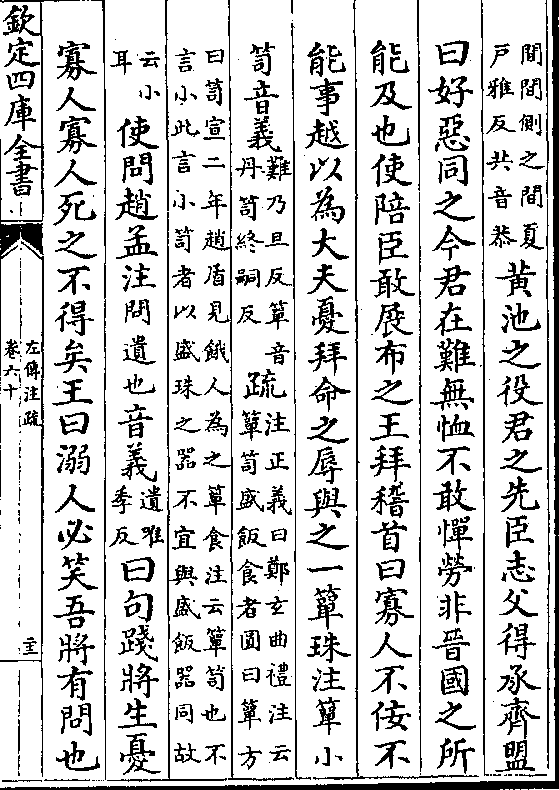 間間側之間夏
戸雅反共音恭
黄池之役君之先臣志父得承齊盟
曰好惡同之今君在難無恤不敢憚勞非晉國之所
能及也使陪臣敢展布之王拜稽首曰寡人不佞不
能事越以為大夫憂拜命之辱與之一簞珠注簞小
笥音義
難乃旦反簞音
丹笥終嗣反
疏
注正義曰鄭玄曲禮注云
簞笥盛飯食者圓曰簞方
曰笥宣二年趙盾見餓人為之簞食注云簞笥也不
言小此言小笥者以盛珠之器不宜與盛飯器同故
云小
耳
使問趙孟注問遺也音義
遺唯
季反
曰句踐將生憂
寡人寡人死之不得矣王曰溺人必笑吾將有問也
欽定四庫全書
左傳注疏
卷六十